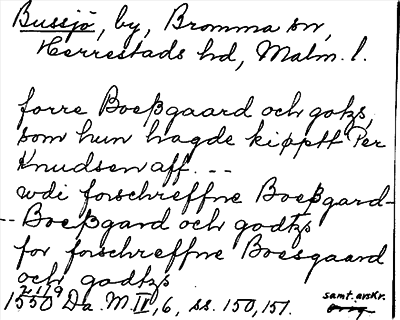 Bussjö, by, Bromma sn,
Herrestads hd, Malm. l.
forre Boeßgaard och gotzs,
som hun hagde kipptt Per
Knudsen aff. --
wdi forschreffne Boeßgard-
-- Boeßgard och godtzs
for forschreffne Boesgaard
och godtzs
2/1 9
1550 Da. M. IV, 6, ss. 150, 151.
samt. avskr.